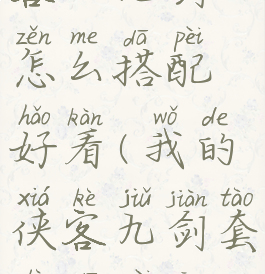 zěn me dā pèi
怎么搭配
hǎo kàn wǒ de
好看(我的
xiá kè jiǔ jiàn tào
侠客九剑套